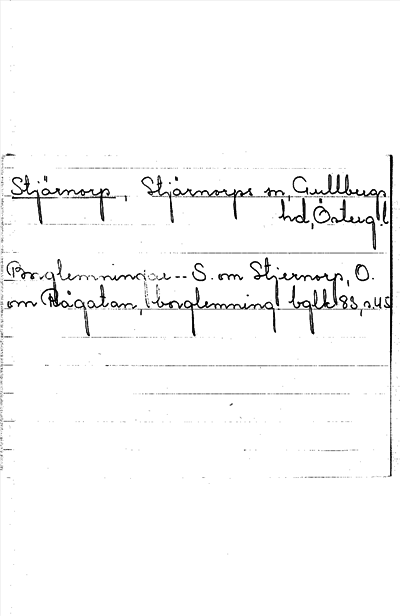 Stjärnorp, Stjärnorps sn, Gullbergs
hd, Österg.l
Borglemningar -- S. om Stjernorp, O.
om Rågatan, borglemning bglk 83, n.45